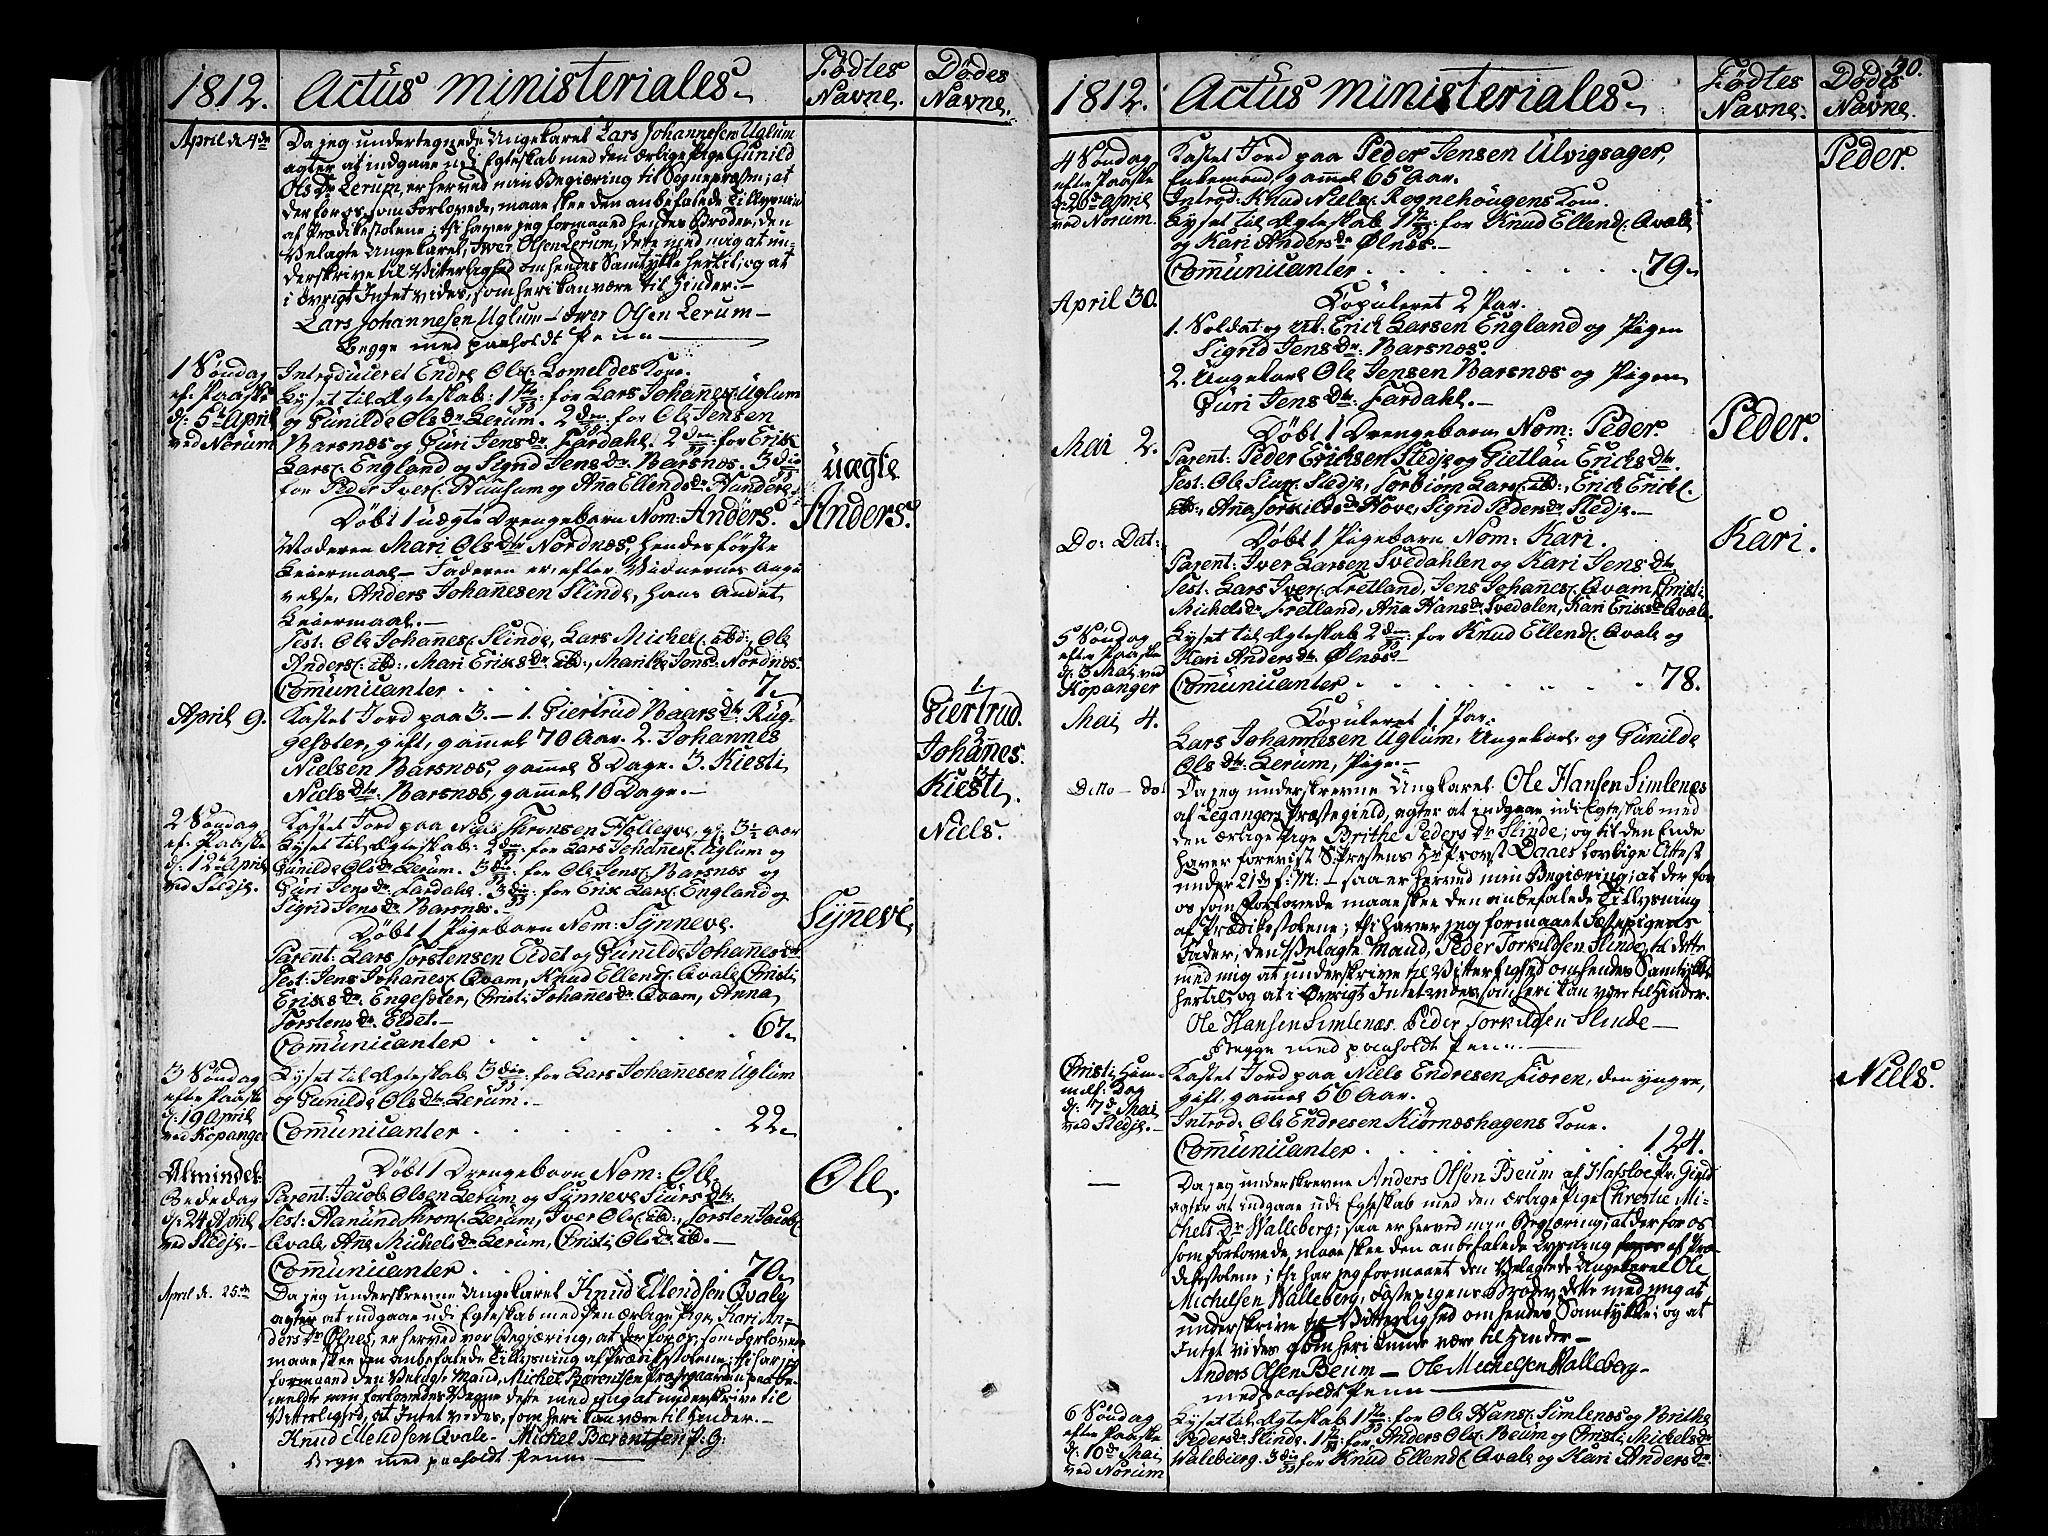 1812.
Actus ministeriales
Fødtes Navne.
Dødes Navne.
April d. 4de
Da jeg undertegnede Ungekarel Lars Johannesen Uglum
agter at indgaae udi Egteskab med den ærlige Pige Gunild
Ols Dr Lerum, er herved min Begiæring til Sognepræsten, at
der for os, som Forlovede, maae skee den anbefalede Tillysning
af Prædikestolene; thi haver jeg formaaed hendes Broder, den
Velagte Ungekarel, Iwer Olsen Lerum, dete med mig at un-
derskrive til Vitterlighed om hendes Samtykke hertil; og at
i øvrigt Intet vides, som heri kan være til Hinder.-
Lars Johannesen Uglum - Iwer Olsen Lerum -
Begge med paaholdt Penn
1 Søndag
ef: Paaske
d: 5te April
ved Norum
Introduceret Endre Ols: Lomeldes Kone.
Lyset til Ægteskab: 1 : for Lars Johannes: Uglum
og Gunilde Ols dr: Lerum. 2 den: for Ole Jensen
Barsnæs og Guri Jens dr Fardahl. 2 den: for Erik
Lars: England og Sigrid Jens dr. Barsnæs. 3 die
for Peder Iver: Huusum og Anna Ellends dr Hundere.
Døbt 1 uægte Drengebarn Nom: Anders.
uægte
Anders.
Moderen Mari Ols Dtr Nordnæs, hendes første
Leiermaal - Faderen er, efter Vidnernes Angi
velse, Anders Johannesen Slinde, hans Andet
Leiermaal.-
Test: Ole Johannes: Slinde, Lars Michel: ibd:, Ole
Anders: ibd:, Mari Eriks Dr ibd:, Marithe Jens d: Nordnæs.
Communicanter . . . . . . 7.
April 9.
Kastet Jord paa 3. - 1. Giertrud Baars Dtr. Rug-
gesæter, gift, gammel 70 Aar. 2. Johannes
Nielsen Barsnæs, gammel 8 Dage. 3. Kiesti
Niels Dtr: Barsnæs, gammel 10 Dage.-
1.
Giertrud.
2.
Johannes.
3.
Kiesti.
2 Søndag
ef: Paaske
d: 12te April
ved Stedje.
Kastet Jord paa Niels Thronsen Hollegve, gl: 3½ aar
Niels.
Lyset til Ægteskab: 2 den: for Lars Johannes: Uglum og
Gunilde Ols dr Lerum. 3 die: for Ole Jens: Barsnæs og
Guri Jens dr. Fardahl. 3 die: for Erik Lars: England og
Sigrid Jens dr. Barsnæs.-
Døbt 1 Pigebarn Nom: Synneve.
Synneve
Parent: Lars Torstensen Eidet og Gunilde Johannes dr
Test: Jens Johannes: Qvam, Knud Ellend: Qvale, Christi
Eriks dr Engesæter, Christi Johannes dr Qvam, Anna
Torstens dr. Eidet.-
Communicanter . . . . . . 67
3 Søndag
efte Paaske
d: 19 April
ved Kopanger
Lyset til Ægteskab 3 die: for Lars Johannesen Uglum
og Gunilde Ols dtr. Lerum.-
Communicanter . . . . . . 22
Almindel:
Bededag
d: 24 April
ved Stedje.-
Døbt 1 Drengebarn Nom: Ole.
Ole.
Parent: Jacob Olsen Lerum og Synneve Siurs Dtr.
Test: Aamund Thron: Lerum, Iver Ols: ibd:, Torsten Jacob:
Qvale, Ane Michels dr Lerum, Christi Ols dr ibd.-
Communicanter . . . . . . 70
April d. 25de
Da jeg underskrevne Ungekarel Knud Ellendsen Qvale
agter at indgaae udi Egteskab med den ærlige Pige Kari An-
ders Dr Ølnes, er herved vor Begiæring, at der for os, som Forlovede
maae skee den anbefalede Tillysning af Prædikestolene; thi har jeg
formaaed den Velagte Mand, Michel Bærentsen paa be-
meldte min forlovedes Vegne dette med mig at underskrive til
Vitterlighed, at Intet vides, som heri kan være til Hinder.-
Knud Ellendsen Qvale - Michel Bærentsen
Begge med paaholdt Penn
1812.
Actus ministeriales
Fødtes Navne.
Dødes Navne.
4 Søndag
efter Paaske
d: 26de April
ved Norum.
Kastet Jord paa Peder Jensen Ulvigsager,
Enkemand, gammel 65 Aar.
Peder
Introd: Knud Niels: Rognehougens Kone.
Lyset til Ægteskab 1 : for Knud Ellend: Qvale
og Kari Anders dr Ølnæs.-
Communicanter . . . . . . 79
April 30.
Copuleret 2 Par.
1. Soldat og Erich Larsen England og Pigen
Sigrid Jens Dr. Barsnæs.
2. Ungekarl Ole Jensen Barsnæs og Pigen
Guri Jens Dtr: Fardahl.-
Mai 2.
Døbt 1 Drengebarn Nom: Peder.
Peder.
Parent: Peder Ericksen Stedje og Gietlau Erichs Dtr
Test: Ole Siur: Stedje, Torbiørn Lars: ibd:, Erich Erich:
ibd:, Ana Torkilds dr Hove, Sigrid Peders dr Stedje.-
Do: Dat:
Døbt 1 Pigebarn Nom: Kari.
Kari.
Parent: Iver Larsen Svedahlen og Kari Jens Dtr
Test: Lars Iver: Fretland, Jens Johannes: Qvam, Christi
Michels dr Fretland, Ana Hans dr Svedalen, Kari Eriks dr Qvale.
5 Søndag
efter Paaske
d: 3 Mai ved
Kopanger
Lyset til Ægteskab 2 den: for Knud Ellend: Qvale og
Kari Anders dtr Ølnæs.-
Communicanter . . . . . . 78.
Mai 4.
Copuleret 1 Par.
Lars Johannesen Uglum, Ungekarl, og Gunilde
Ols dtr: Lerum, Pige.-
Ditto - do:
Da jeg underskrevne Ungkarel Ole Hansen Simlenæs
af Leganger Præstegield, agter at indgaae udi Egteskab med
den ærlige Pige Brithe Peders Dr Slinde; og til den Ende
haver forevist S: Præstens Hr Provst Daaes lovlige Attest
under 21de f: M: - saa er herved min Begiæring, at der for
os som Forlovede maae skee den anbefalede Tillysning
af Prædikestolene; thi haver jeg formaaet Fæstepigens
Fader, den Velagte Mand, Peder Torkildsen Slinde, til dette
med mig at underskrive til Vitterlighed om hendes Samtykke
hertil, og at i Øvrigt Intet vides, som heri kan være til Hinder.
Ole Hansen Simlenæs. Peder Torkildsen Slinde -
Begge med paaholdt Penn.
Christi Him-
melf: Dag
d: 7de Mai
ved Stedje.-
Kastet Jord paa Niels Endresen Fiæren, den yngre,
gift, gammel 56 Aar.
Niels.
Introd: Ole Endresen Kiørnæshagens Kone.
Communicanter . . . . . . 124.
-
Da jeg underskrevne Anders Olsen Beum af Hafsloe Pr: Gield
agter at indgaae udi Egteskab med den ærlige Pige Christie Mi-
chels Dr Walleberg; saa er herved min Begiæring, at der for os
som Forlovede, maae skee den anbefalede Lysning af Præ-
dikestolene; thi har jeg formaaet den Velagtede Ungekarel Ole
Michelsen Walleberg, Fæstepigens Broder, dette med mig at
underskrive til Vitterlighed om hendes Samtykke; og at
Intet vides som heri kunde være til Hinder -
Anders Olsen Beum - Ole Michelsen Walleberg -
med paaholdt Penn
6 Søndag
efter Paaske
d: 10de Mai
ved Norum
Lyset til Ægteskab 1 : for Ole Hans: Simlenæs og Brithe
Peders dr Slinde. 1 : for Anders Ols: Beum og Christi Michels dr
Waleberg. 3 die for Knud Ellend: Qvale og Kari Anders dr